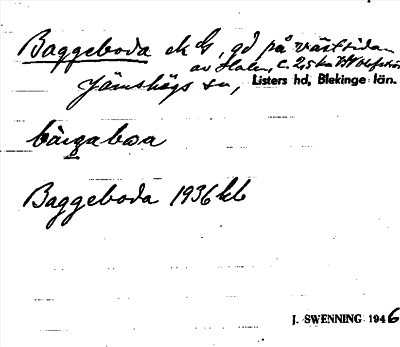 Baggeboda ek G, gd på västsidan
av Halen, c. 2,5 km NV Olofström
Jämshögs sn, Listers hd, Blekinge län.
bàgabωa
Baggeboda 1936 kb
J. SWENNING 1946